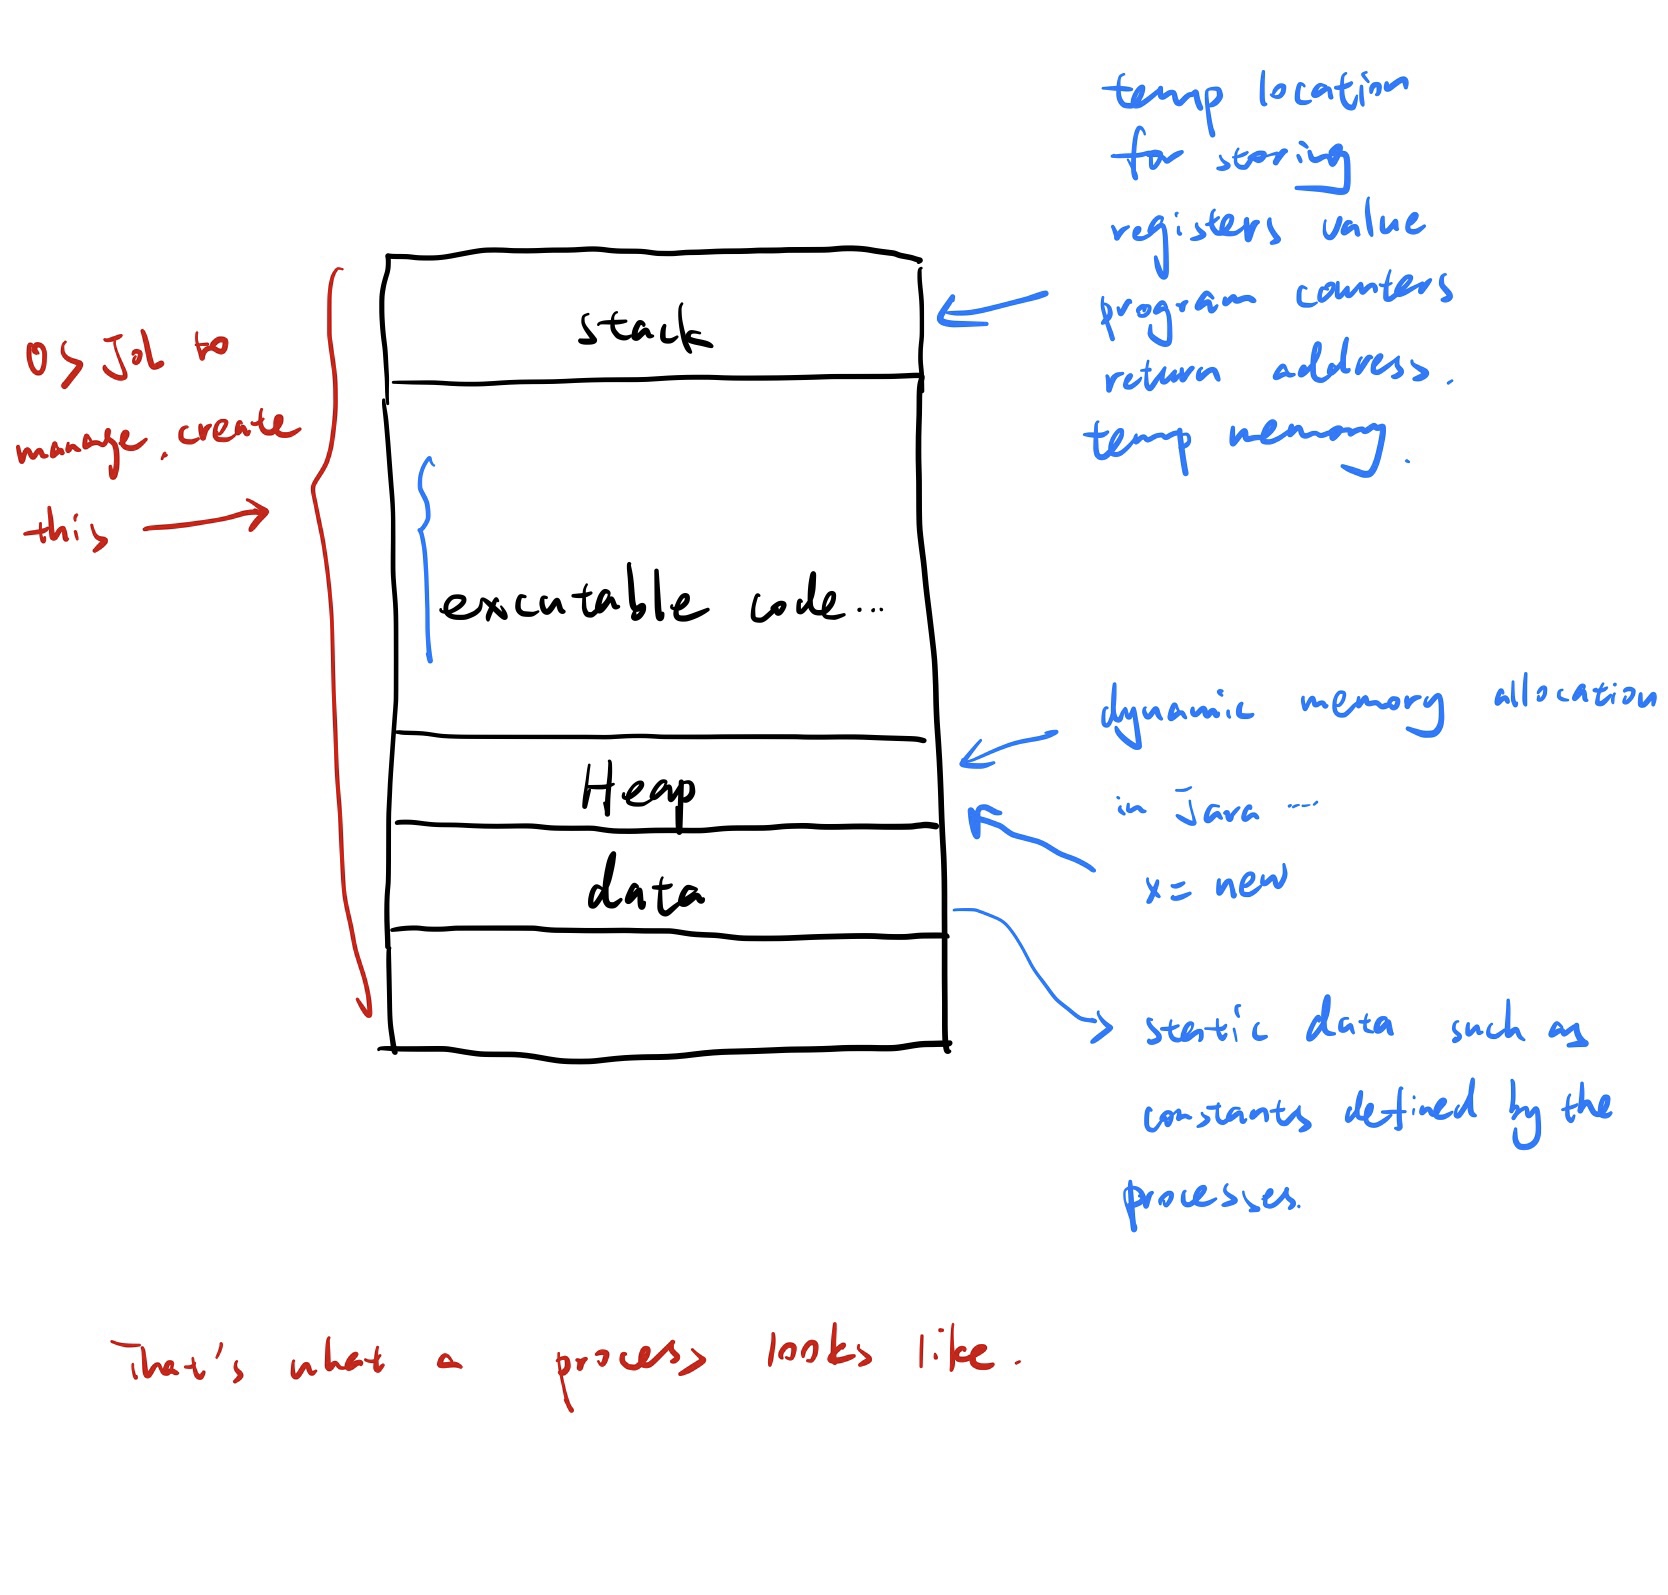 temp location
for storing
registers value
program counters
return address.
temp memory.
OS Job to
manage, create
this
stack
excutable code...
Heap
data
dynamic memory allocation
in Java ...
x= new
static data such as
constants defined by the
processes.
That's what a process looks like.